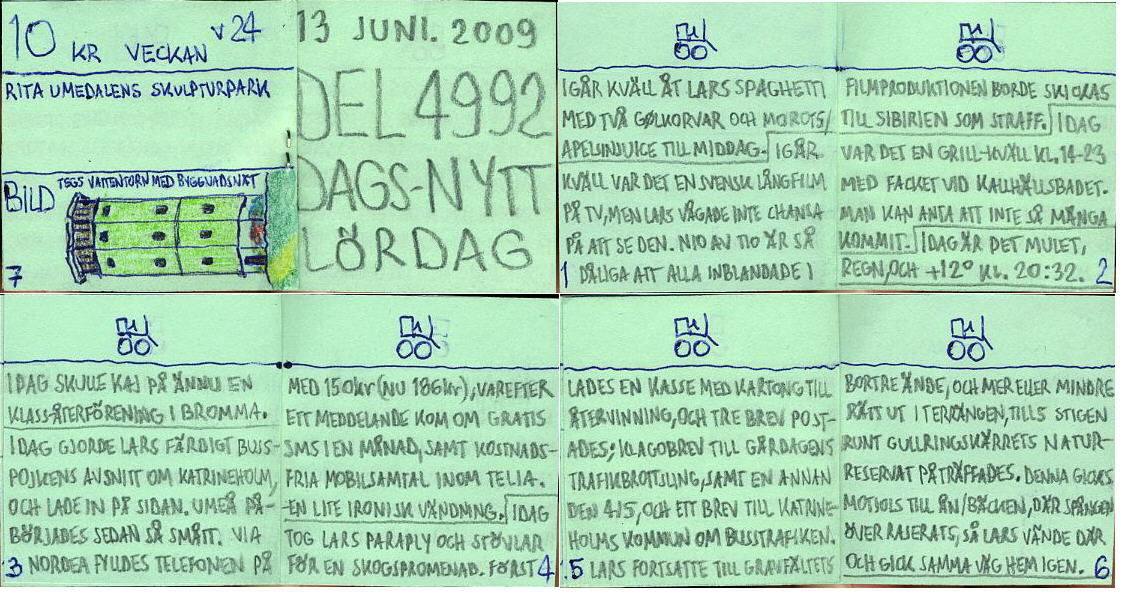 10 KR VECKAN v24
RITA UMEDALENS SKULPTURPARK
TEGS VATTENTORN MED BYGGNADSNÄT
BILD
7
13 JUNI. 2009
DEL 4992
DAGS-NYTT
LÖRDAG
IGÅR KVÄLL ÅT LARS SPAGHETTI
MED TVÅ GØLKORVAR OCH MOROTS/
APELSINJUICE TILL MIDDAG. IGÅR
KVÄLL VAR DET EN SVENSK LÅNGFILM
PÅ TV, MEN LARS VÅGADE INTE CHANSA
PÅ ATT SE DEN. NIO AV TIO ÄR SÅ
1 DÅLIGA ATT ALLA INBLANDADE I
FILMPRODUKTIONEN BORDE SKICKAS
TILL SIBIRIEN SOM STRAFF. IDAG
VAR DET EN GRILL-KVÄLL KL. 14-23
MED FACKET VID KALLHÄLLSBADET.
MAN KAN ANTA ATT INTE SÅ MÅNGA
KOMMIT. IDAG ÄR DET MULET,
REGN, OCH +12° KL. 20:32. 2
IDAG SKULLE KAJ PÅ ÄNNU EN
KLASS-ÅTERFÖRENING I BROMMA.
IDAG GJORDE LARS FÄRDIGT BUSS-
POJKENS AVSNITT OM KATRINEHOLM,
OCH LADE IN PÅ SIDAN. UMEÅ PÅ-
BÖRJADES SEDAN SÅ SMÅTT. VIA
3 NORDEA FYLLDES TELEFONEN PÅ
MED 150kr (NU 186kr), VAREFTER
ETT MEDDELANDE KOM OM GRATIS
SMS I EN MÅNAD, SAMT KOSTNADS-
FRIA MOBILSAMTAL INOM TELIA.
-EN LITE IRONISK VÄNDNING. IDAG
TOG LARS PARAPLY OCH STÖVLAR
FÖR EN SKOGSPROMENAD. FÖRST 4
LADES EN KASSE MED KARTONG TILL
ÅTERVINNING, OCH TRE BREV POST-
ADES; KLAGOBREV TILL GÅRDAGENS
TRAFIKBROTTSLING, SAMT EN ANNAN
DEN 4/5, OCH ETT BREV TILL KATRINE-
HOLMS KOMMUN OM BUSSTRAFIKEN.
5 LARS FORTSATTE TILL GRAVFÄLTETS
BORTRE ÄNDE, OCH MER ELLER MINDRE
RÄTT UT I TERRÄNGEN, TILLS STIGEN
RUNT GULLRINGSKÄRRETS NATUR-
RESERVAT PÅTRÄFFADES. DENNA GICKS
MOTSOLS TILL ÅN/BÄCKEN, DÄR SPÅNGEN
ÖVER RASERATS, SÅ LARS VÄNDE DÄR
OCH GICK SAMMA VÄG HEM IGEN. 6